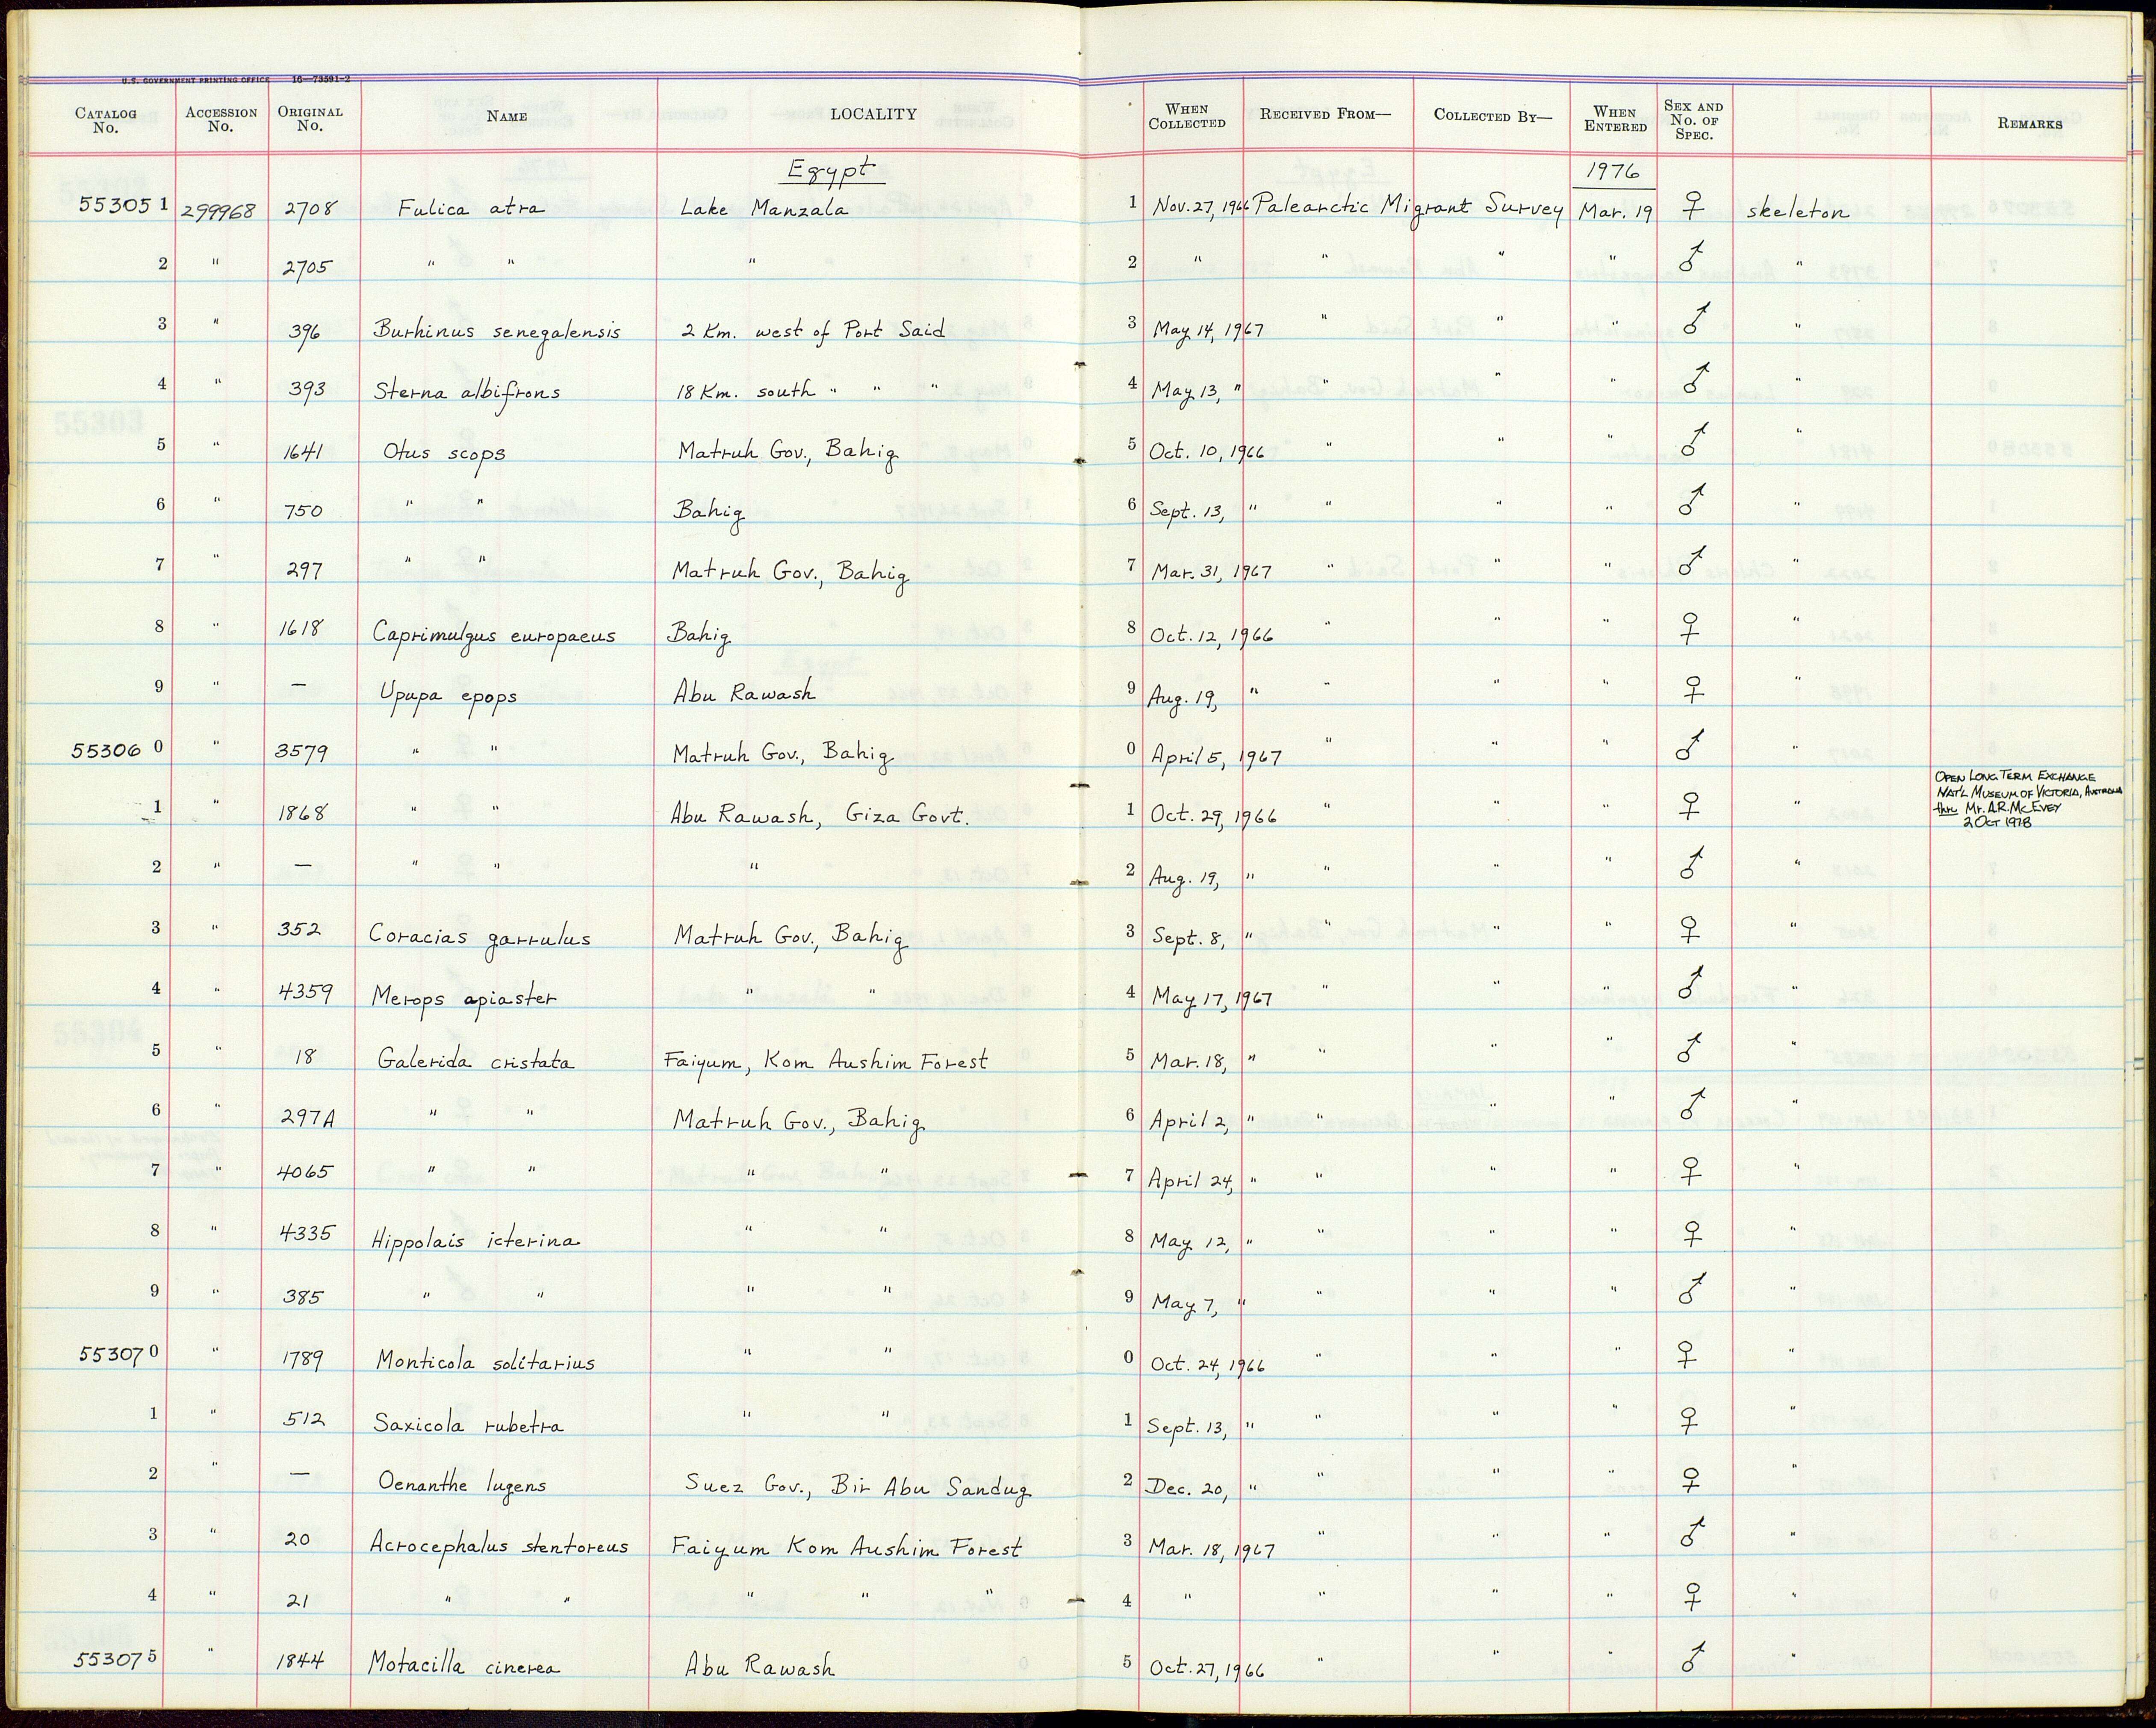 U.S. GOVERNMENT PRINTING OFFICE 16—73591-2
CATALOG No. ACCESSION No. ORIGINAL No. NAME LOCALITY WHEN COLLECTED RECEIVED FROM— COLLECTED BY— WHEN ENTERED SEX AND No. OF SPEC. REMARKS
Egypt 1976
553051 299968 2708 Fulica atra Lake Manzala 1 Nov. 27, 1966 Palearctic Migrant Survey Mar. 19 ♀ skeleton
2 " 2705 " " " 2 " " " " ♂ "
3 " 396 Burhinus senegalensis 2 Km. west of Port Said 3 May 14, 1967 " " " ♂ "
4 " 393 Sterna albifrons 18 Km. south " " " 4 May 13, " " " " ♂ "
5 " 1641 Otus scops Matruh Gov., Bahig 5 Oct. 10, 1966 " " " ♂ "
6 " 750 " " Bahig 6 Sept. 13, " " " " ♂ "
7 " 297 " " Matruh Gov., Bahig 7 Mar. 31, 1967 " " " ♂ "
8 " 1618 Caprimulgus europaeus Bahig 8 Oct. 12, 1966 " " " ♀ "
9 " — Upupa epops Abu Rawash 9 Aug. 19, " " " " ♀ "
553060 " 3579 " " Matruh Gov., Bahig 0 April 5, 1967 " " " ♂ "
1 " 1868 " " Abu Rawash, Giza Govt. 1 Oct. 29, 1966 " " " ♀ " OPEN LONG TERM EXCHANGE
NAT'L MUSEUM OF VICTORIA, AUSTRALIA
thru Mr. A.R. McEVEY
2 OCT 1978
2 " — " " " 2 Aug. 19, " " " " ♂ "
3 " 352 Coracias garrulus Matruh Gov., Bahig 3 Sept. 8, " " " " ♀ "
4 " 4359 Merops apiaster " " 4 May 17, 1967 " " " ♂ "
5 " 18 Galerida cristata Faiyum, Kom Aushim Forest 5 Mar. 18, " " " " ♂ "
6 " 297A " " Matruh Gov., Bahig 6 April 2, " " " " ♂ "
7 " 4065 " " " " 7 April 24, " " " " ♀ "
8 " 4335 Hippolais icterina " " 8 May 12, " " " " ♀ "
9 " 385 " " " " 9 May 7, " " " " ♂ "
553070 " 1789 Monticola solitarius " " 0 Oct. 24, 1966 " " " ♀ "
1 " 512 Saxicola rubetra " " 1 Sept. 13, " " " " ♀ "
2 " — Oenanthe lugens Suez Gov., Bir Abu Sandug 2 Dec. 20, " " " " ♀ "
3 " 20 Acrocephalus stentoreus Faiyum Kom Aushim Forest 3 Mar. 18, 1967 " " " ♂ "
4 " 21 " " " " " 4 " " " " ♀ "
553075 " 1844 Motacilla cinerea Abu Rawash 5 Oct. 27, 1966 " " " ♂ "